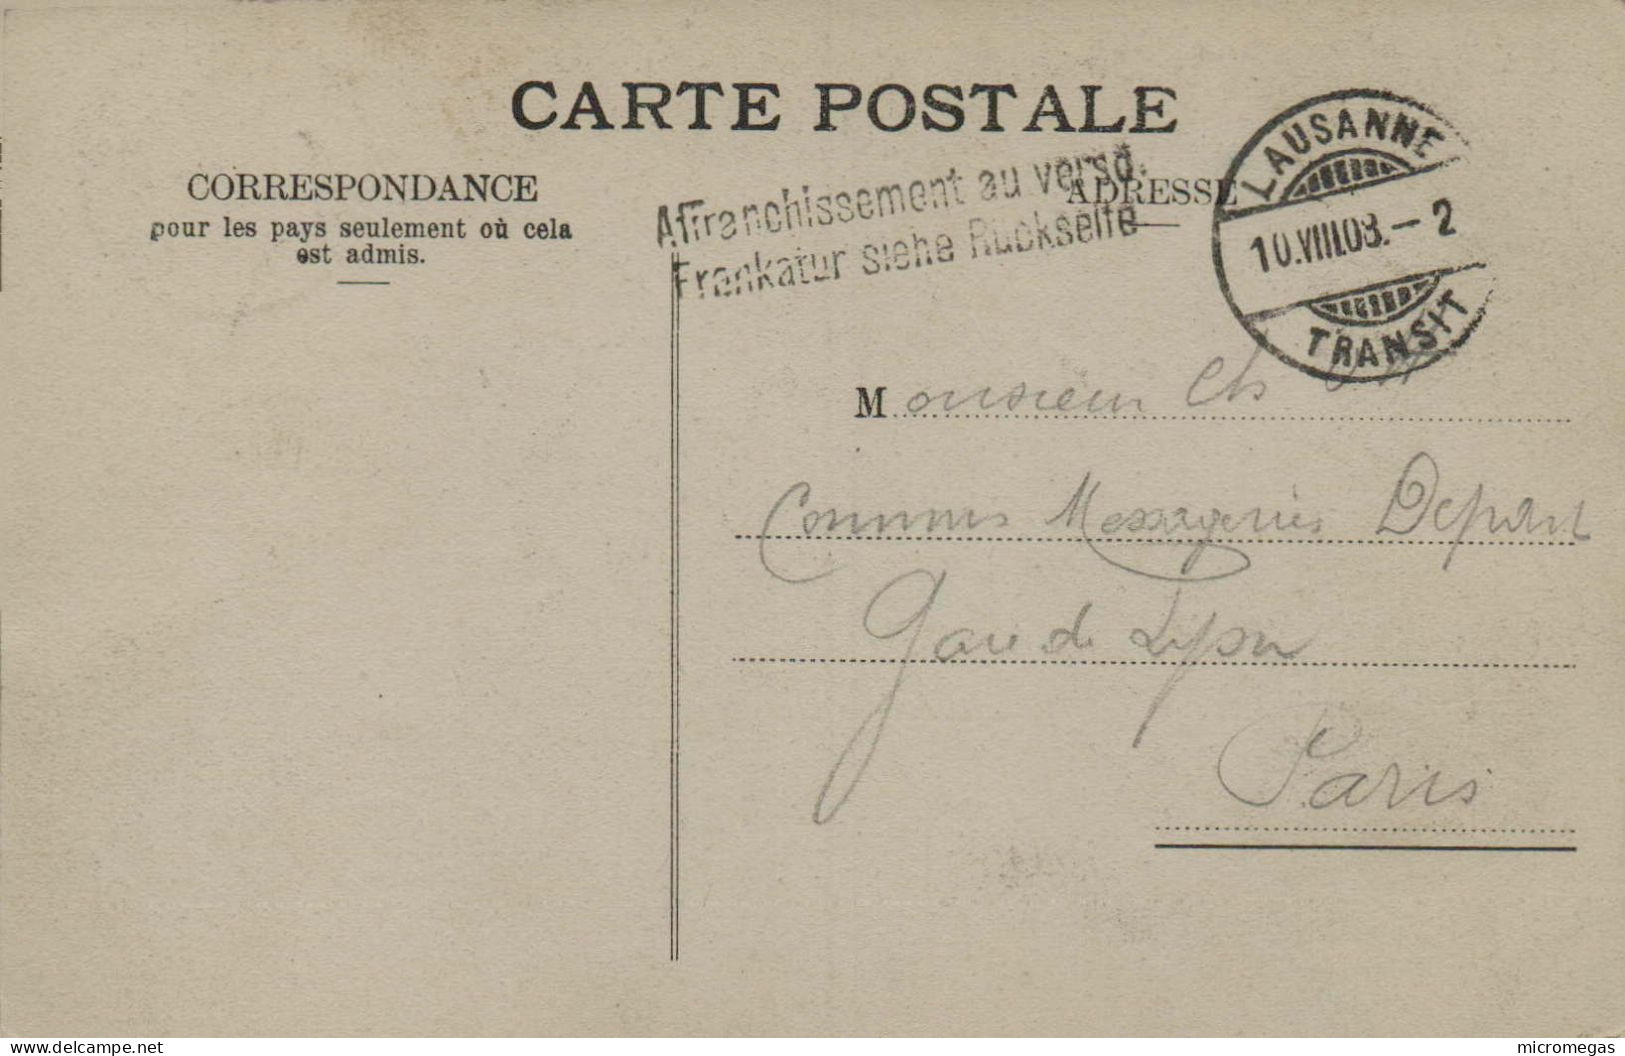 CARTE POSTALE
CORRESPONDANCE
pour les pays seulement où cela
est admis.
Affranchissement au verso.
Frankatur siehe Rückseite
ADRESSE
LAUSANNE
10.VIII.08.–2
TRANSIT
Monsieur Ch
Commis Messageries Départ
Gare de Lyon
Paris
www.delcampe.net
micromegas